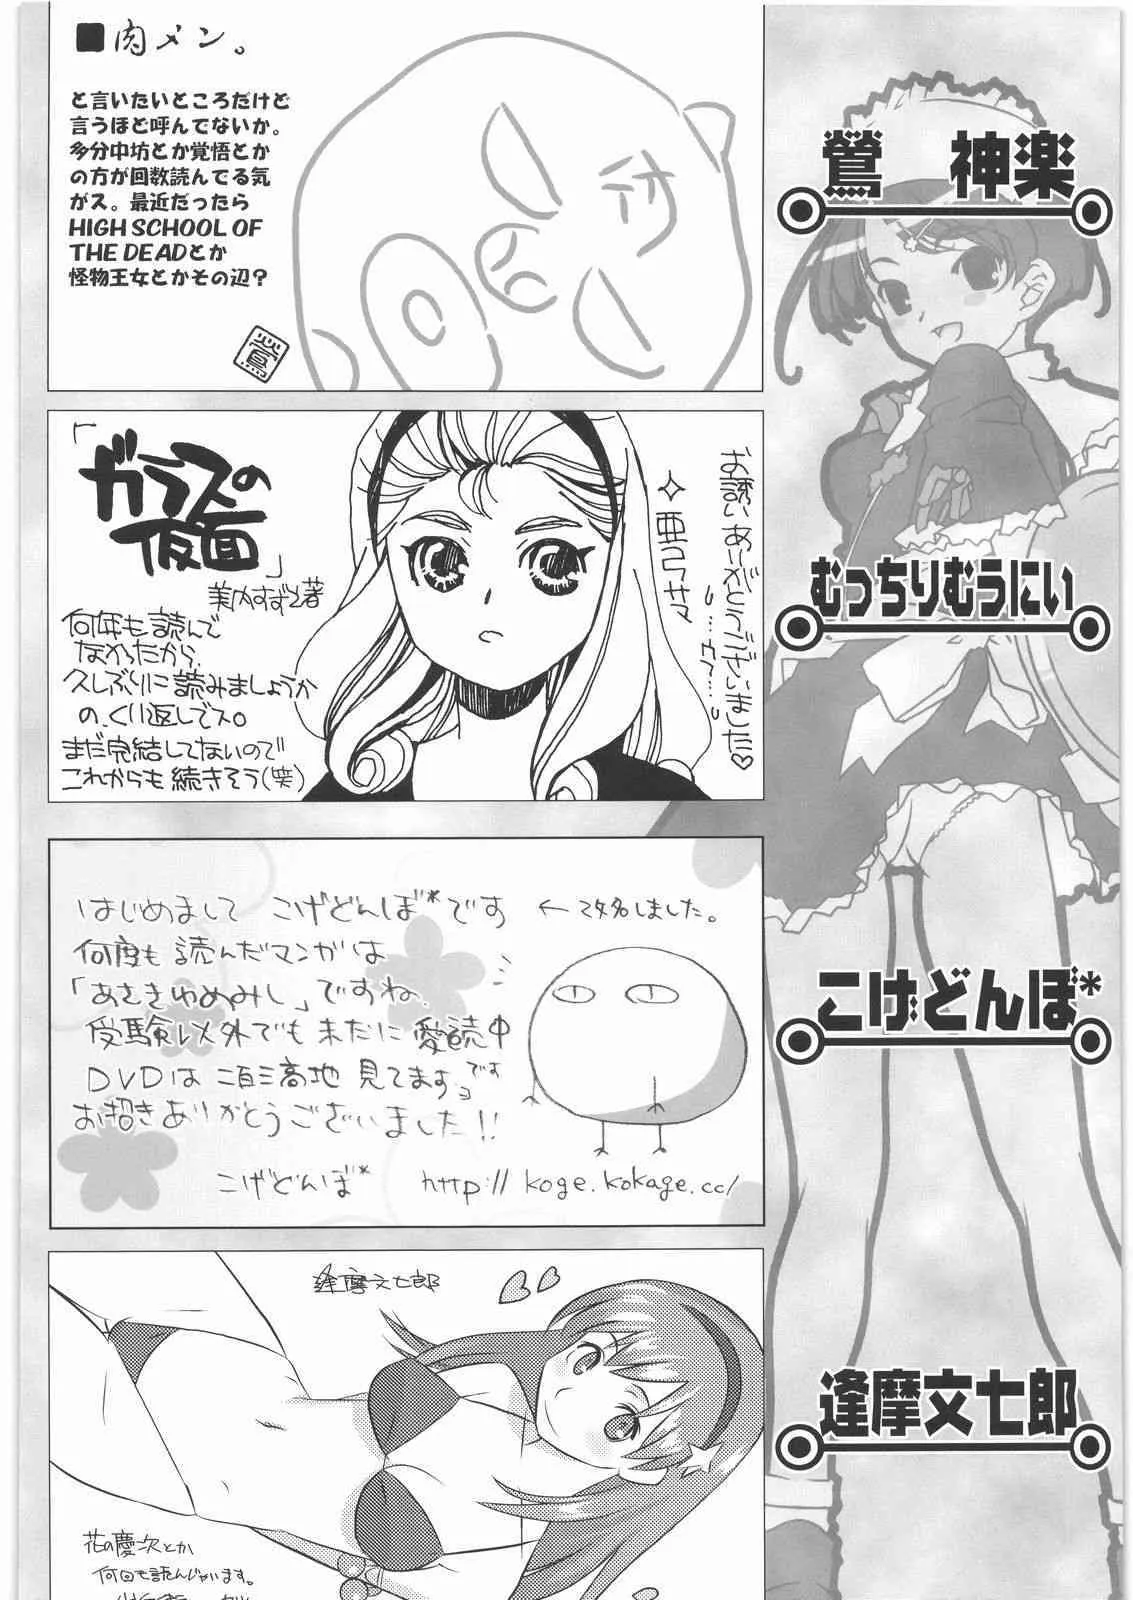 ■肉メン。
と言いたいところだけど
言うほど呼んでないか。
多分中坊とか覚悟とか
の方が回数読んでる気
がス。最近だったら
HIGH SCHOOL OF
THE DEADとか
怪物王女とかその辺?
鶯
鶯 神楽
「ガラスの
仮面」
美内すずえ著
何年も読んで
なかったから、
久しぶりに読みましょうか
の、くり返しでス。
まだ完結してないので
これからも続きそう(笑)
お誘いありがとうございました♡
✧亜コラサマ
むっちりむうにい
はじめまして こげどんぼ*です
←改名しました。
何度も読んだマンガは
「あさきゆめみし」ですね。
受験以外でも未だに愛読中
です
DVDは二百三高地見てますョ
お招きありがとうございました!!
こげどんぼ* http://koge.kokage.cc/
こげどんぼ*
逢摩文七郎
花の慶次とか
何回も読んじゃいます。
逢摩文七郎